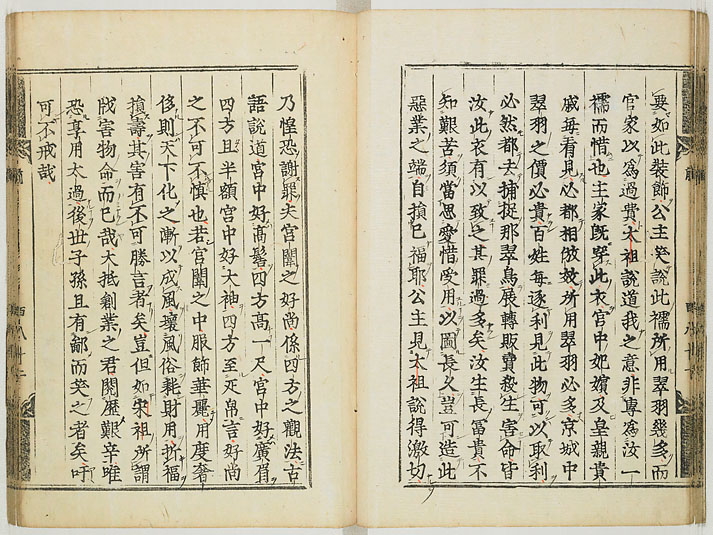 要如此裝飾公主笑說此襦所用翠羽幾多而
官家以爲過貴太祖說道我之意非專爲汝一
襦而惜也主家旣穿此衣宮中妃嬪及皇親貴
戚每看見必都相倣效所用翠羽必多京城中
翠羽之價必貴百姓每逐利見此物可以取利
必然都去捕捉那翠鳥展轉販賣殺生害命皆
汝此衣有以致之其罪過多矣汝生長富貴不
知艱苦須當思愛惜受用以圖長久豈可造此
惡業之端自損己福耶公主見太祖說得激切
乃惶恐謝罪夫宮闈之好尚係四方之觀法古
語說道宮中好高髻四方高一尺宮中好廣眉
四方且半額宮中好大神四方至疋帛言好尚
之不可不慎也若宮闈之中服飾華麗用度奢
侈則天下化之漸以成風壞風俗耗財用折福
損壽其害有不可勝言者矣豈但如宋祖所謂
戕害物命而已哉大抵創業之君閱歷艱辛唯
恐享用太過後世子孫且有鄙而笑之者矣吁
可不戒哉